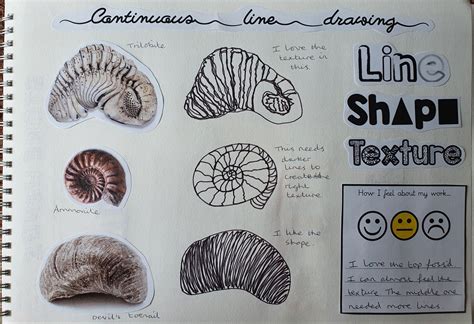 Continuous line drawing
Trilobite
I love the
texture in
this.
Line
Shape
Texture
This needs
darker
lines to
create the
right
texture.
Ammonite
How I feel about my work...
I like the
shape.
I love the top fossil
I can almost feel the
texture. The middle one
needed more lines.
Devil's toenail